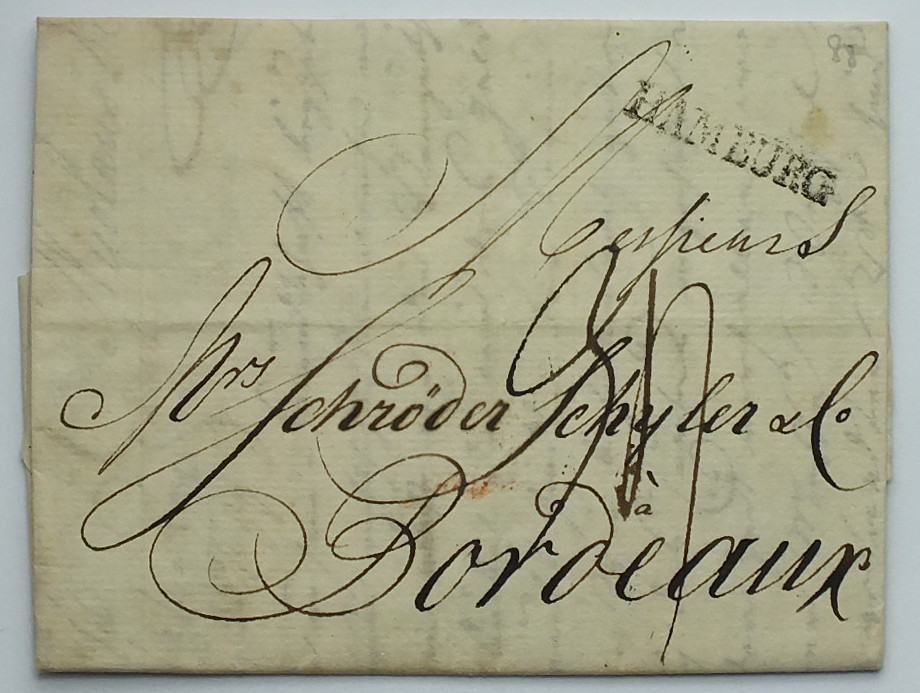 HAMBURG
Messieurs
Mrs Schröder Schyler & Co
à
Bordeaux